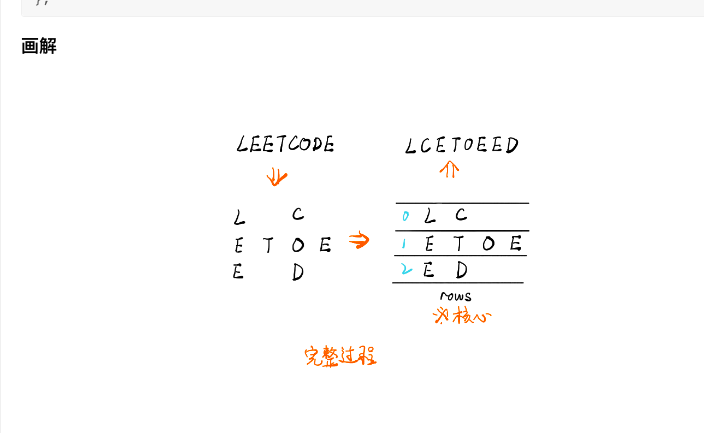 };
画解
LEETCODE
LCETOEED
L C
E T O E
E D
0 L C
1 E T O E
2 E D
rows
※核心
完整过程